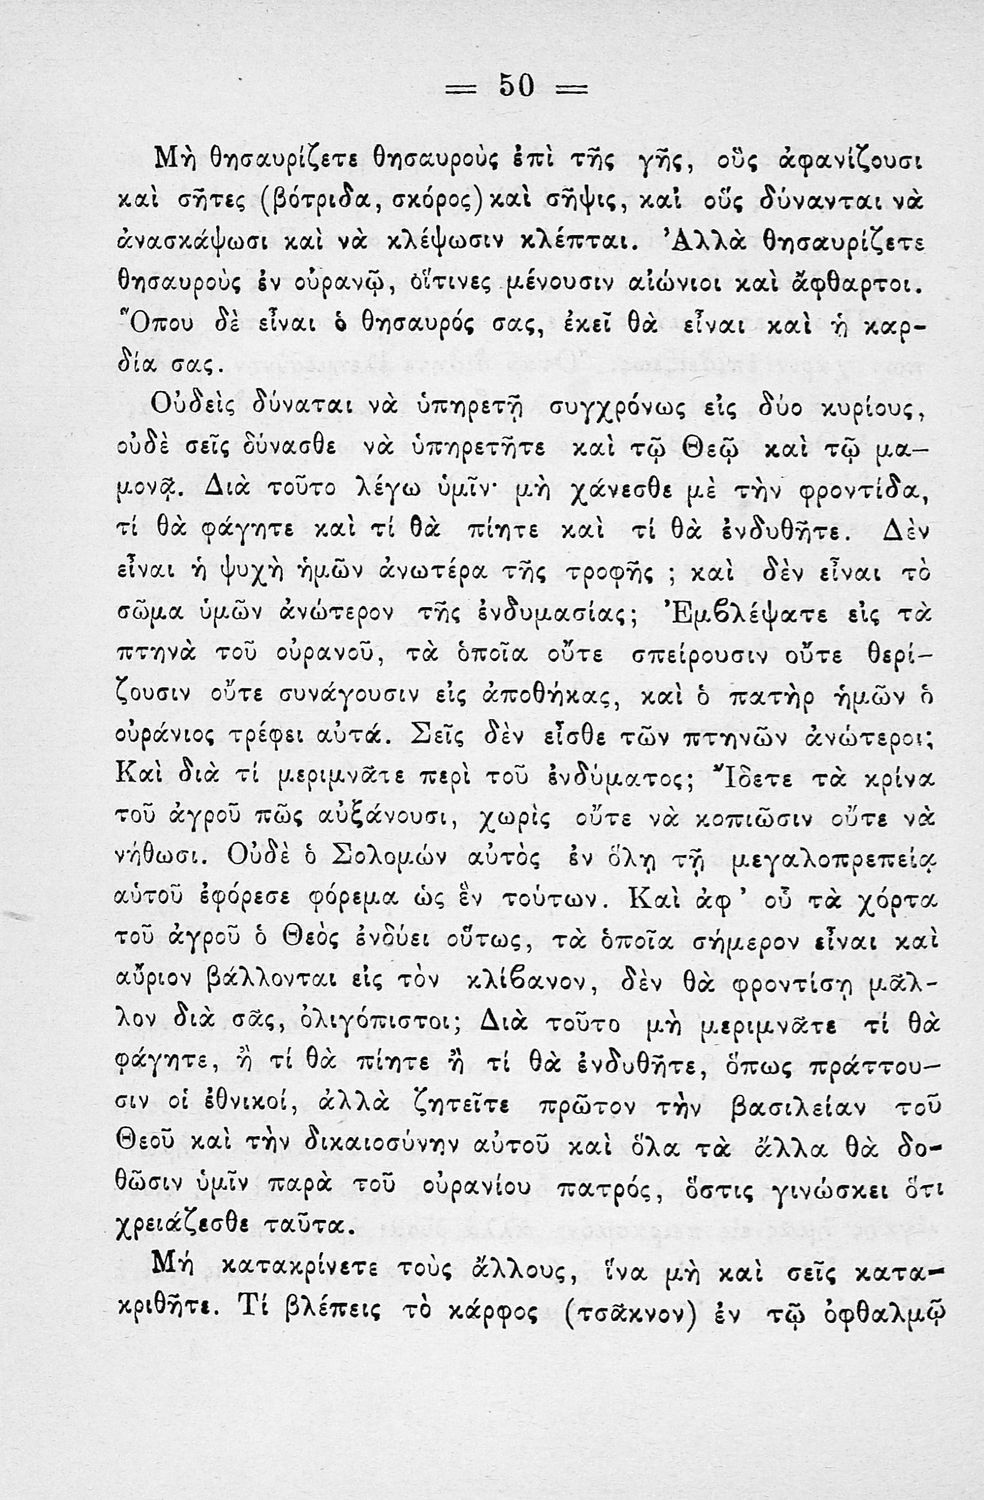 = 50 =
Μὴ θησαυρίζετε θησαυροὺς ἐπὶ τῆς γῆς, οὓς ἀφανίζουσι
καὶ σῆτες (βότριδα, σκόρος) καὶ σῆψις, καὶ οὕς δύνανται νὰ
ἀνασκάψωσι καὶ νὰ κλέψωσιν κλέπται. Ἀλλὰ θησαυρίζετε
θησαυροὺς ἐν οὐρανῷ, οἵτινες μένουσιν αἰώνιοι καὶ ἄφθαρτοι.
Ὅπου δὲ εἶναι ὁ θησαυρός σας, ἐκεῖ θὰ εἶναι καὶ ἡ καρ-
δία σας.
Οὐδεὶς δύναται νὰ ὑπηρετῇ συγχρόνως εἰς δύο κυρίους,
οὐδὲ σεῖς δύνασθε νὰ ὑπηρετῆτε καὶ τῷ Θεῷ καὶ τῷ μα-
μονᾷ. Διὰ τοῦτο λέγω ὑμῖν· μὴ χάνεσθε μὲ τὴν φροντίδα,
τί θὰ φάγητε καὶ τί θὰ πίητε καὶ τί θὰ ἐνδυθῆτε. Δὲν
εἶναι ἡ ψυχὴ ἡμῶν ἀνωτέρα τῆς τροφῆς ; καὶ δὲν εἶναι τὸ
σῶμα ὑμῶν ἀνώτερον τῆς ἐνδυμασίας; Ἐμβλέψατε εἰς τὰ
πτηνὰ τοῦ οὐρανοῦ, τὰ ὁποῖα οὔτε σπείρουσιν οὔτε θερί-
ζουσιν οὔτε συνάγουσιν εἰς ἀποθήκας, καὶ ὁ πατὴρ ἡμῶν ὁ
οὐράνιος τρέφει αὐτά. Σεῖς δὲν εἶσθε τῶν πτηνῶν ἀνώτεροι;
Καὶ διὰ τί μεριμνᾶτε περὶ τοῦ ἐνδύματος; Ἴδετε τὰ κρίνα
τοῦ ἀγροῦ πῶς αὐξάνουσι, χωρὶς οὔτε νὰ κοπιῶσιν οὔτε νὰ
νήθωσι. Οὐδὲ ὁ Σολομών αὐτὸς ἐν ὅλῃ τῇ μεγαλοπρεπείᾳ
αὑτοῦ ἐφόρεσε φόρεμα ὡς ἓν τούτων. Καὶ ἀφ’ οὗ τὰ χόρτα
τοῦ ἀγροῦ ὁ Θεὸς ἐνδύει οὕτως, τὰ ὁποῖα σήμερον εἶναι καὶ
αὔριον βάλλονται εἰς τὸν κλίβανον, δὲν θὰ φροντίσῃ μᾶλ-
λον διὰ σᾶς, ὀλιγόπιστοι; Διὰ τοῦτο μὴ μεριμνᾶτε τί θὰ
φάγητε, ἢ τί θὰ πίητε ἢ τί θὰ ἐνδυθῆτε, ὅπως πράττου-
σιν οἱ ἐθνικοί, ἀλλὰ ζητεῖτε πρῶτον τὴν βασιλείαν τοῦ
Θεοῦ καὶ τὴν δικαιοσύνην αὐτοῦ καὶ ὅλα τὰ ἄλλα θὰ δο-
θῶσιν ὑμῖν παρὰ τοῦ οὐρανίου πατρός, ὅστις γινώσκει ὅτι
χρειάζεσθε ταῦτα.
Μή κατακρίνετε τοὺς ἄλλους, ἵνα μὴ καὶ σεῖς κατα-
κριθῆτε. Τί βλέπεις τὸ κάρφος (τσᾶκνον) ἐν τῷ ὀφθαλμῷ